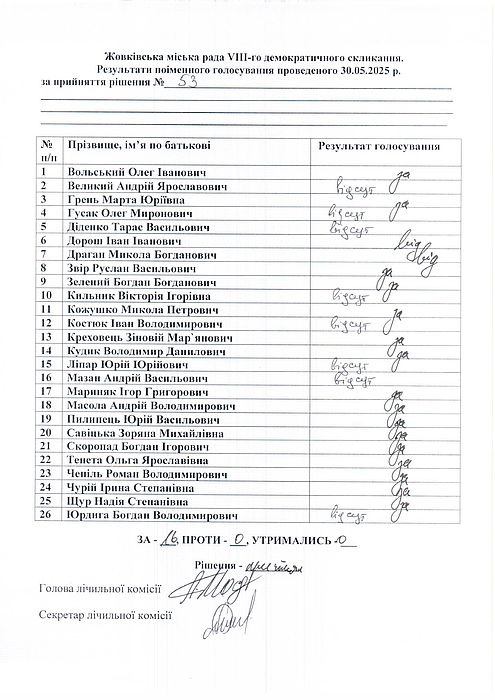 Жовківська міська рада VIII-го демократичного скликання.
Результати поіменного голосування проведеного 30.05.2025 р.
за прийняття рішення № 53
№ п/п Прізвище, ім’я по батькові Результат голосування
1 Вольський Олег Іванович за
2 Великий Андрій Ярославович відсут
3 Грень Марта Юріївна за
4 Гусак Олег Миронович відсут
5 Діденко Тарас Васильович відсут
6 Дорош Іван Іванович від
7 Драган Микола Богданович від
8 Звір Руслан Васильович за
9 Зелений Богдан Богданович за
10 Кильник Вікторія Ігорівна відсут
11 Кожушко Микола Петрович за
12 Костюк Іван Володимирович відсут
13 Креховець Зіновій Мар`янович за
14 Кудик Володимир Данилович за
15 Ліпар Юрій Юрійович відсут
16 Мазан Андрій Васильович відсут
17 Мариняк Ігор Григорович за
18 Масола Андрій Володимирович за
19 Пилипець Юрій Васильович за
20 Савіцька Зоряна Михайлівна за
21 Скоропад Богдан Ігорович за
22 Тенета Ольга Ярославівна за
23 Чепіль Роман Володимирович за
24 Чурій Ірина Степанівна за
25 Щур Надія Степанівна за
26 Юрдига Богдан Володимирович відсут
ЗА - 16, ПРОТИ - 0, УТРИМАЛИСЬ - 0
Рішення - прийняти
Голова лічильної комісії
Секретар лічильної комісії